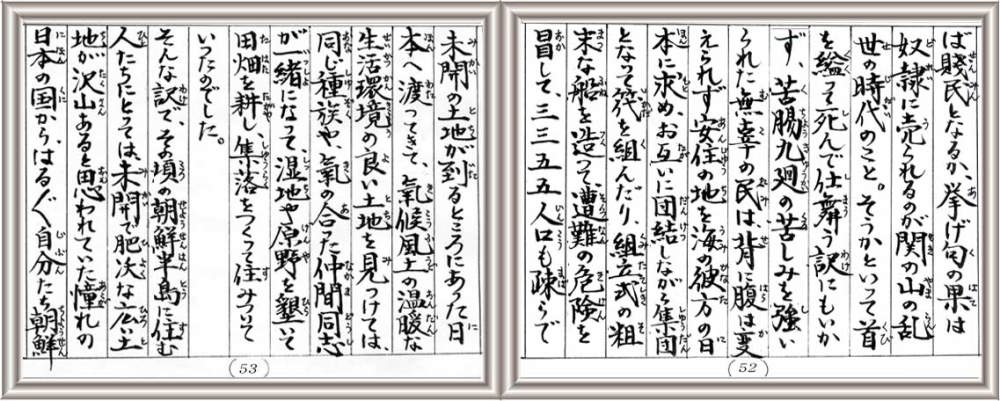 ば賤民となるか、挙げ句の果は
奴隷に売られるのが関の山の乱
世の時代のこと。そうかといって首
を縊って死んで仕舞う訳にもいか
ず、苦腸九廻の苦しみを強い
られた無辜の民は、背に腹は変
えられず安住の地を海の彼方の日
本に求め、お互いに団結しながら集団
となって筏を組んだり、組立式の粗
末な船を造って、遭難の危険を
冒して、三三五五人口も疎らで
(52)
未開の土地が到るところにあった日
本へ渡ってきて、氣候風土の温暖な
生活環境の良い土地を見つけては、
同じ種族や、氣の合った仲間同志
が一緒になって、湿地や原野を墾いて
田畑を耕し、集落をつくって住みついて
いったのでした。
そんな訳で、その頃の朝鮮半島に住む
人たちにとっては、未開で肥沃な広い土
地が沢山あると思われていた憧れの
日本の国から、はる〲自分たち朝鮮
(53)